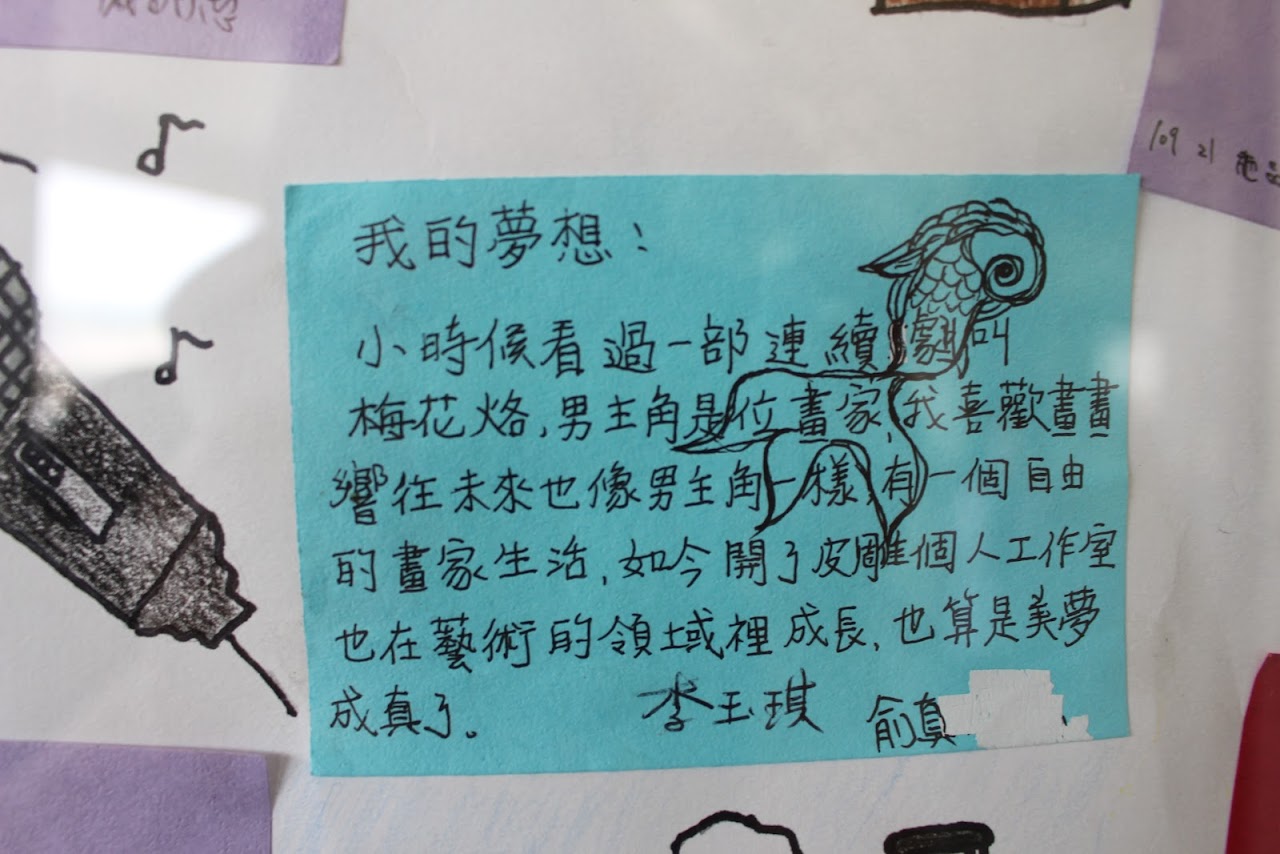 我的夢想：
小時候看過一部連續劇叫
梅花烙,男主角是位畫家,我喜歡畫畫
響往未來也像男主角一樣,有一個自由
的畫家生活,如今開了皮雕個人工作室
也在藝術的領域裡成長,也算是美夢
成真了。 李玉琪 俞真
109 21